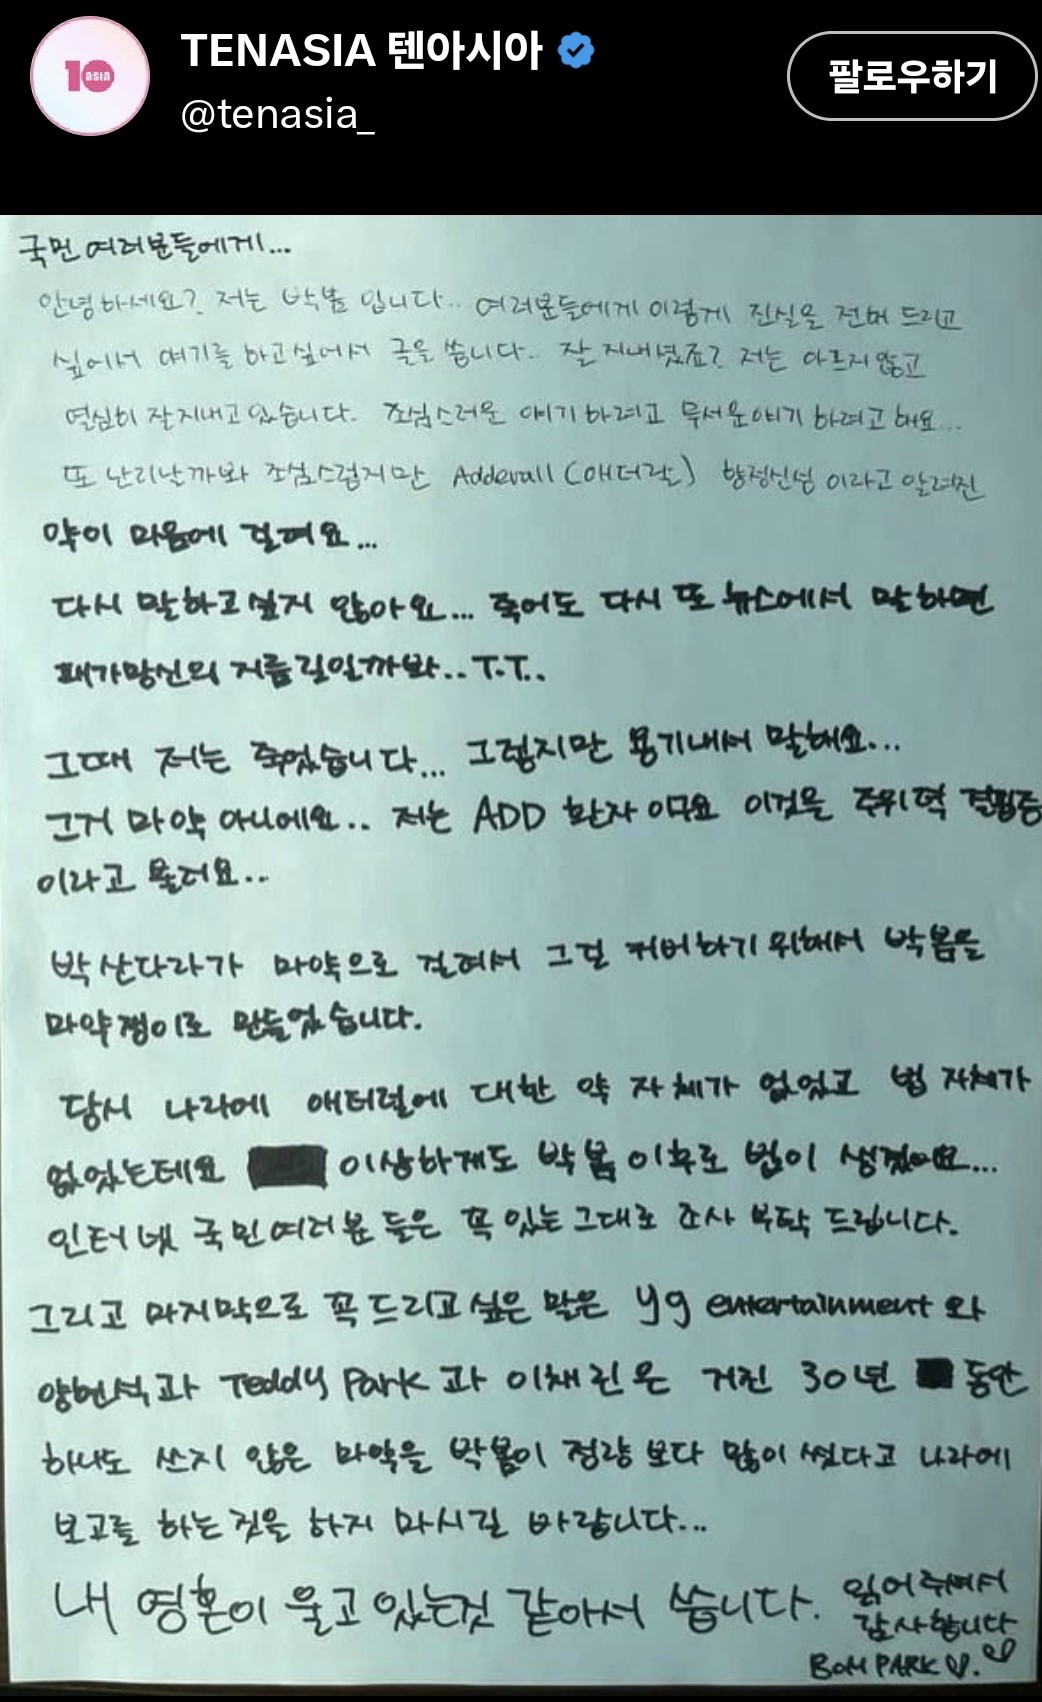 TENASIA 텐아시아
@tenasia_
팔로우하기
10
asia
국민 여러분들에게...
안녕하세요? 저는 박봄 입니다.. 여러분들에게 이렇게 진실을 전해 드리고
싶어서 얘기를 하고싶어서 글을 씁니다.. 잘 지내셨죠? 저는 아프지않고
열심히 잘지내고 있습니다. 조심스러운 얘기하려고 무서운얘기 하려고 해요...
또 난리날까봐 조심스럽지만 Adderall (애더랄) 향정신성 이라고 알려진
약이 마음에 걸려요...
다시 말하고싶지 않아요... 죽어도 다시 또 뉴스에서 말하면
패가망신의 지름길일까봐.. T.T.
그때 저는 죽었습니다... 그렇지만 용기내서 말해요...
그거 마약 아니에요.. 저는 ADD 환자 이구요 이것을 주위력 결핍증
이라고 불러요..
박산다라가 마약으로 걸려서 그걸 커버하기위해서 박봄을
마약쟁이로 만들었습니다.
당시 나라에 애더럴에 대한 약 자체가 없었고 법 자체가
없었는데요 이상하게도 박봄 이후로 법이 생겼어요...
인터넷 국민여러분 들은 꼭 있는 그대로 조사 부탁 드립니다.
그리고 마지막으로 꼭 드리고 싶은 말은 yg entertainment 와
양현석과 Teddy Park 과 이채린은 거진 30년 동안
하나도 쓰지 않은 마약을 박봄이 정량 보다 많이 썼다고 나라에
보고를 하는 것을 하지 마시길 바랍니다...
내 영혼이 울고 있는것 같아서 씁니다. 읽어주셔서
감사합니다
BOM PARK♡.♡